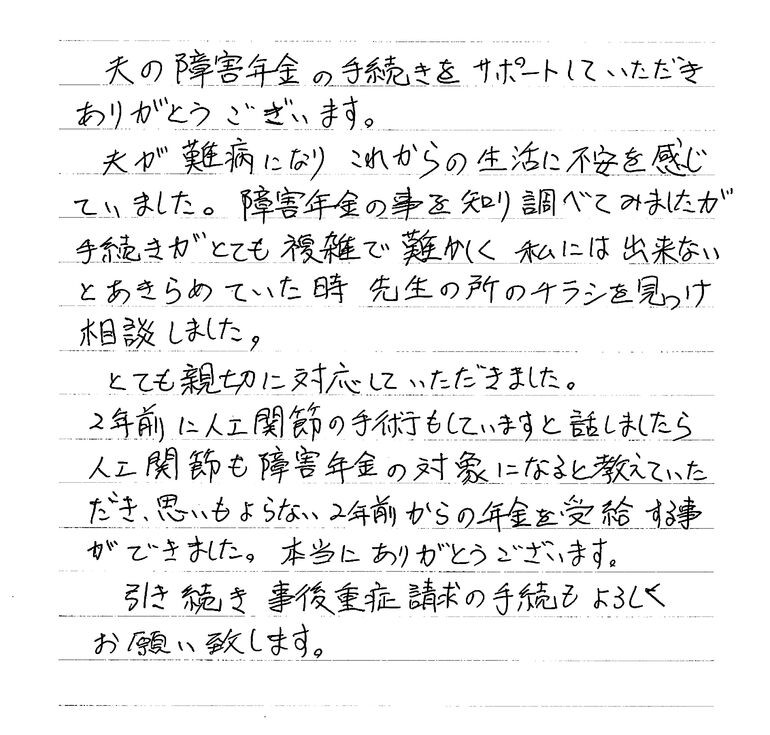 夫の障害年金の手続きをサポートしていただき
ありがとうございます。
夫が難病になりこれからの生活に不安を感じ
ていました。障害年金の事を知り調べてみましたが
手続きがとても複雑で難かしく私には出来ない
とあきらめていた時先生の所のチラシを見つけ
相談しました。
とても親切に対応していただきました。
2年前に人工関節の手術もしていますと話しましたら
人工関節も障害年金の対象になると教えていた
だき、思いもよらない2年前からの年金を受給する事
ができました。本当にありがとうございます。
引き続き事後重症請求の手続もよろしく
お願い致します。